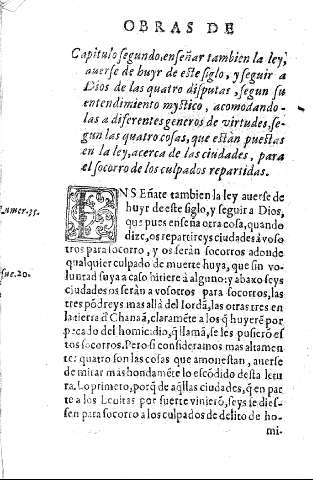 OBRAS DE
Capitulo segundo, enseñar tambien la ley,
auerse de huyr de este siglo, y seguir a
Dios de las quatro disputas, segun su
entendimiento mystico, acomodando-
las a diferentes generos de virtudes, se-
gun las quatro cosas, que estàn puestas
en la ley, acerca de las ciudades, para
el socorro de los culpados repartidas.
ENSEñate tambien la ley auerse de
huyr de este siglo, y seguir a Dios,
que pues enseña otra cosa, quando
Numer. 35.
dize, os repartireys ciudades à voso
tros para socorro, y os seràn socorros adonde
qualquier culpado de muerte huya, que sin vo-
luntad suya a caso hiriere à alguno: y abaxo seys
Iosue. 20.
ciudades os seràn à vosotros para socorros, las
tres pódreys mas allà del Iordã, las otras tres en
la tierra d̃ Chanaã, claramẽte a los q̃ huyerẽ por
pecado del homicidio, q̃ llamã, se les pusierõ es
tos socorros. Pero si consideramos mas altamen
te: quatro son las cosas que amonestan, auerse
de mirar mas hondamẽte lo escódido desta letu
ra. Lo primero, porq̃ de aq̃llas ciudades, q̃ en par
te a los Leuitas por suerte vinierõ, seys se dies-
sen para socorro a los culpados de delito de ho-
mi-